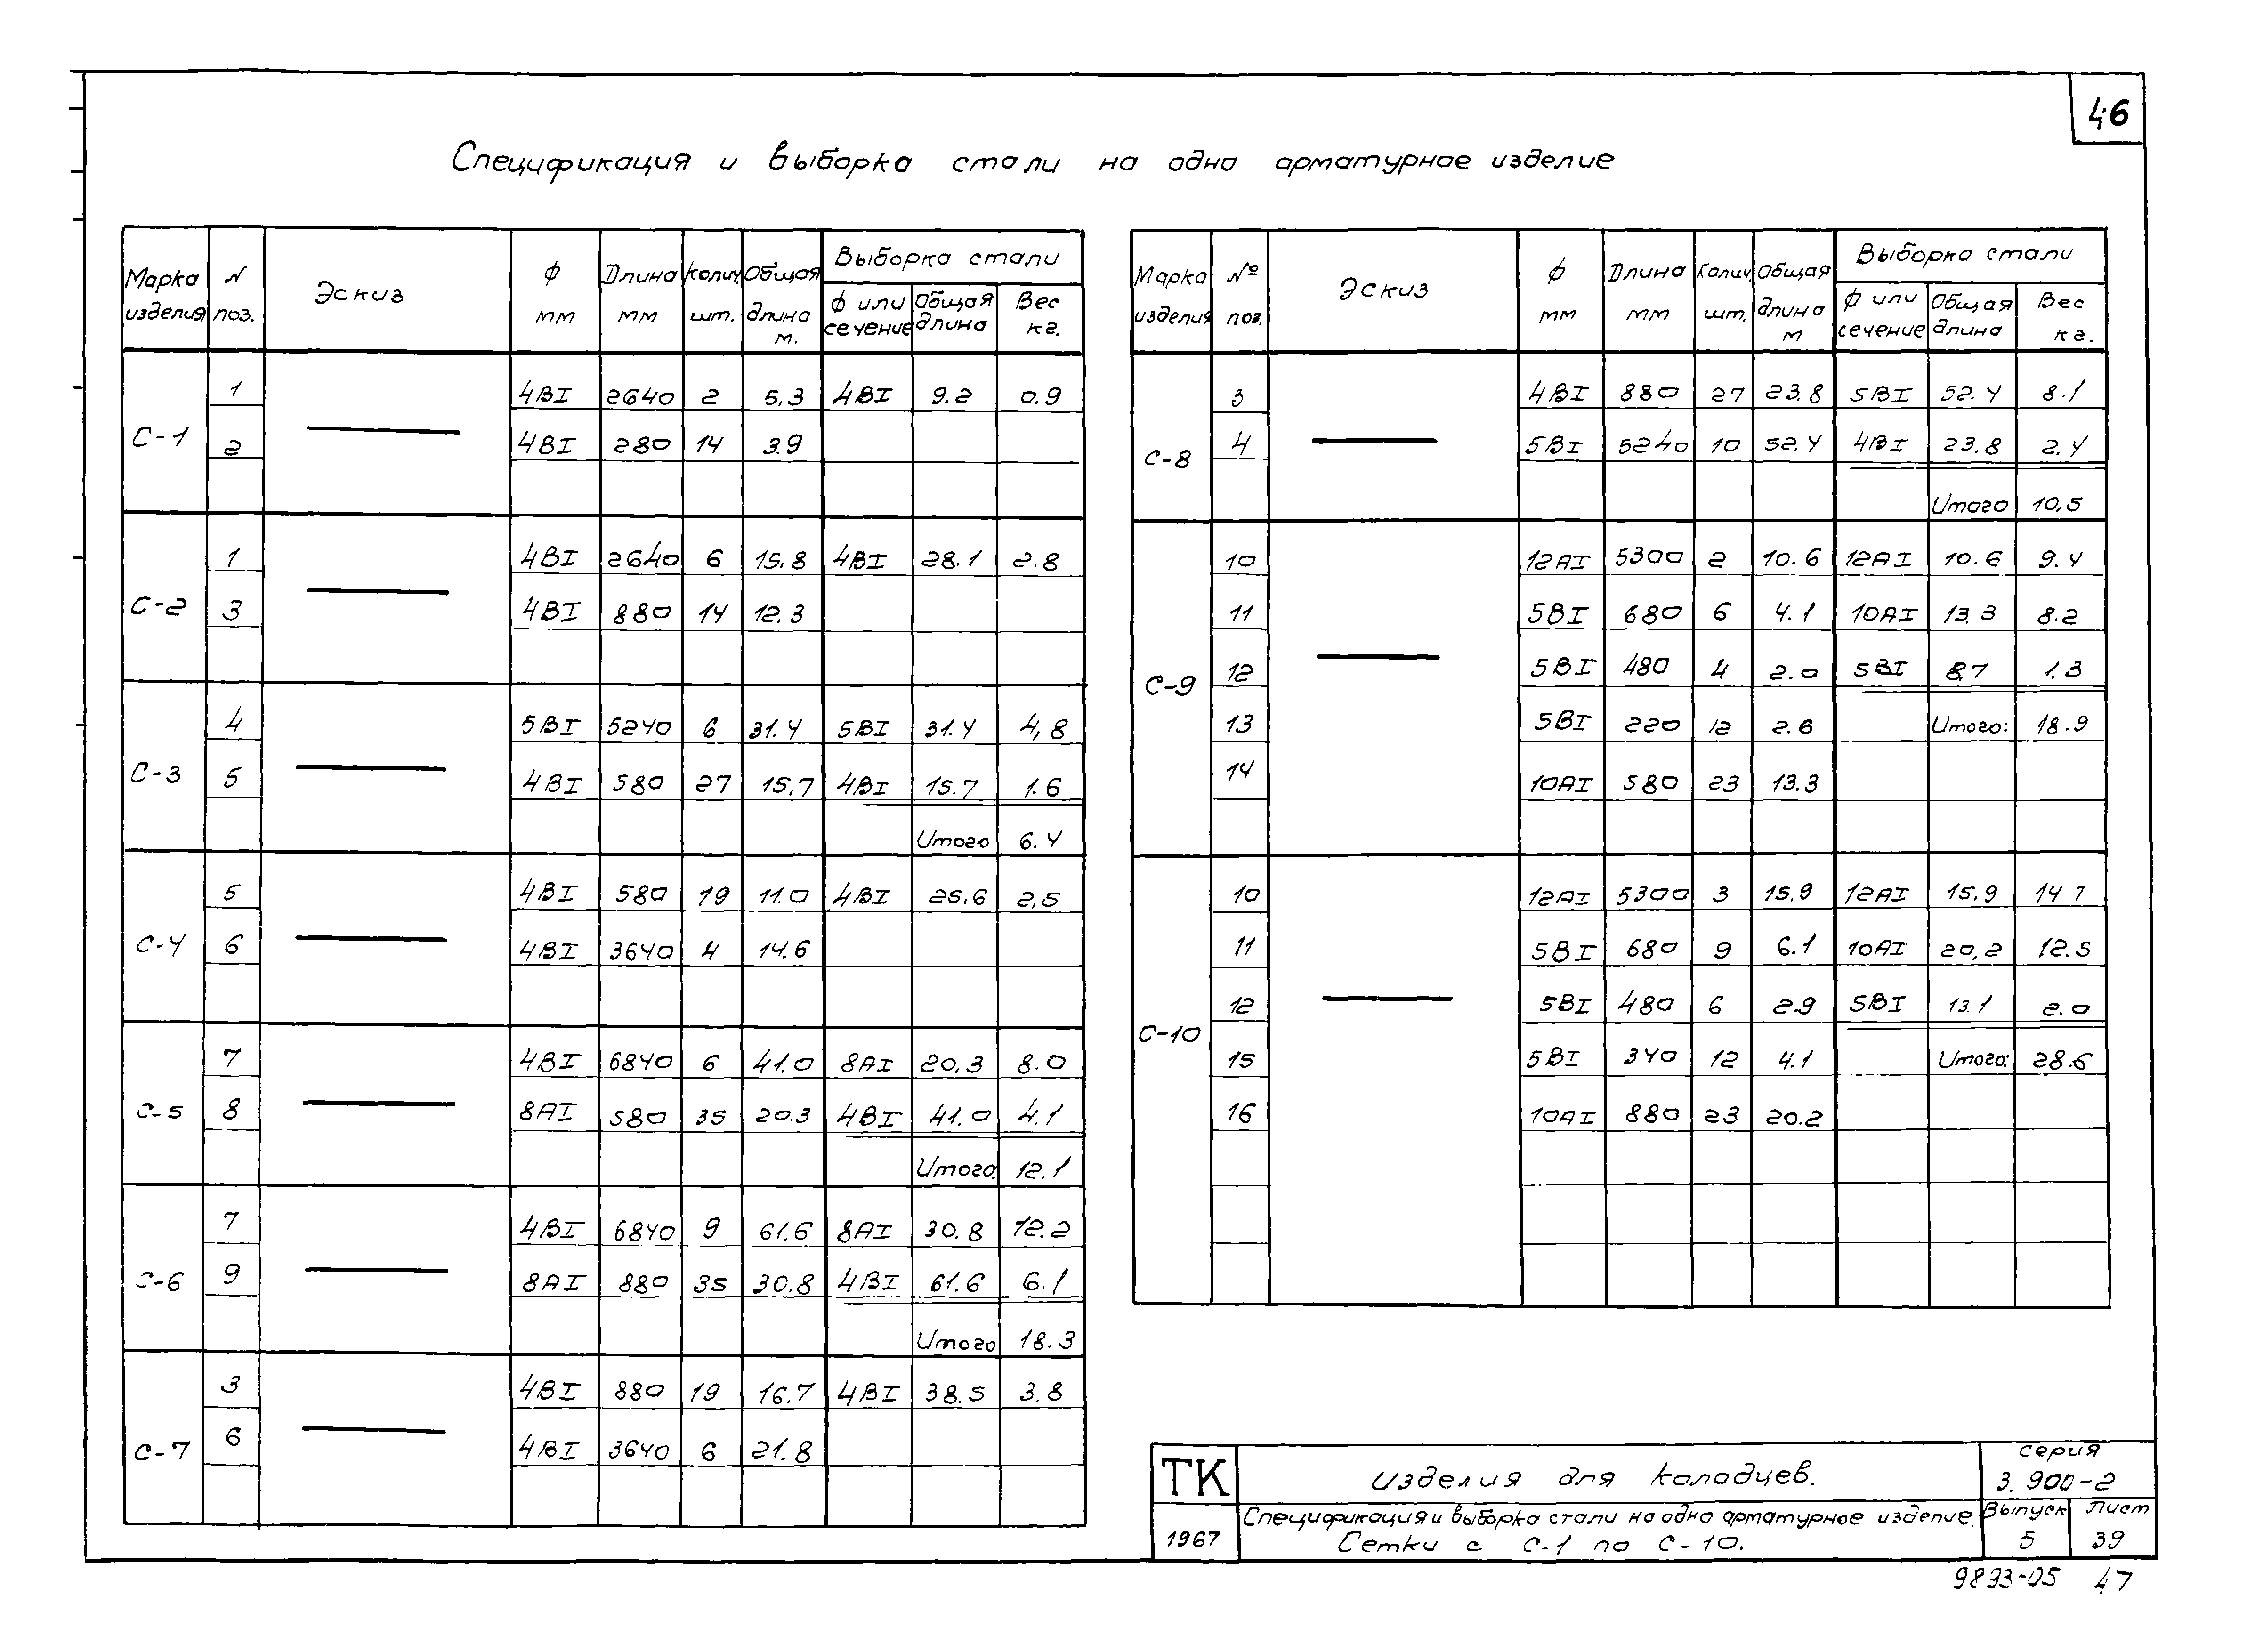 46
Спецификация и выборка стали на одно арматурное изделие
Марка изделия N поз. Эскиз ф мм Длина мм Колич. шт. Общая длина м. Выборка стали ф или сечение Общая длина Вес кг.
С-1
1 4ВI 2640 2 5.3 4ВI 9.2 0.9
2 4ВI 280 14 3.9
С-2
1 4ВI 2640 6 15.8 4ВI 28.1 2.8
3 4ВI 880 14 12.3
С-3
4 5ВI 5240 6 31.4 5ВI 31.4 4,8
5 4ВI 580 27 15.7 4ВI 15.7 1.6
Итого 6.4
С-4
5 4ВI 580 19 11.0 4ВI 25.6 2,5
6 4ВI 3640 4 14.6
С-5
7 4ВI 6840 6 41.0 8АI 20,3 8.0
8 8АI 580 35 20.3 4ВI 41.0 4.1
Итого. 12.1
С-6
7 4ВI 6840 9 61.6 8АI 30.8 12.2
9 8АI 880 35 30.8 4ВI 61.6 6.1
Итого 18.3
С-7
3 4ВI 880 19 16.7 4ВI 38.5 3.8
6 4ВI 3640 6 21.8
Марка изделия № поз. Эскиз ф мм Длина мм Колич. шт. Общая длина м Выборка стали ф или сечение Общая длина Вес кг.
С-8
3 4ВI 880 27 23.8 5ВI 52.4 8.1
4 5ВI 5240 10 52.4 4ВI 23.8 2.4
Итого 10,5
С-9
10 12АI 5300 2 10.6 12АI 10.6 9.4
11 5ВI 680 6 4.1 10АI 13.3 8.2
12 5ВI 480 4 2.0 5ВI 8,7 1.3
13 5ВI 220 12 2.6 Итого: 18.9
14 10АI 580 23 13.3
С-10
10 12АI 5300 3 15.9 12АI 15.9 14 1
11 5ВI 680 9 6.1 10АI 20,2 12.5
12 5ВI 480 6 2.9 5ВI 13.1 2.0
15 5ВI 340 12 4.1 Итого: 28.6
16 10АI 880 23 20.2
ТК Изделия для колодцев. серия 3.900-2
1967 Спецификация и выборка стали на одно арматурное изделие. Выпуск Лист
Сетки с С-1 по С-10. 5 39
9893-05 47